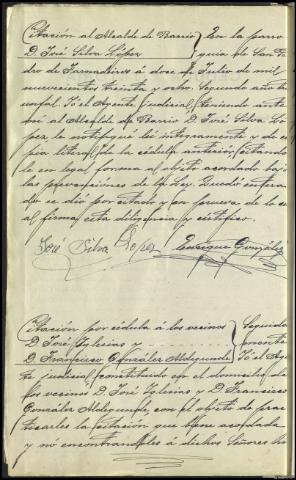 Citación al Alcalde de Barrio } En la parro
D. José Silva López } quia de San Pe
dro de Tamadeiros á doce de Julio de mil
nuevecientos treinta y ocho. Segundo año triunfal. Yó el Agente judicial, teniendo ante
mi al Alcalde de Barrio D. José Silva Ló
pez, le notifiqué leí íntegramente y dí co
pia literal de la cédula anterior, citando
le en legal forma al objeto acordado bajo
las prevenciones de la Ley. Quedó entera
do se dio por citado y en prueba de lo cu
al firma esta diligencia y certifico.
José Silva López Enrique González
Citación por cédula á los vecinos } Seguida
D. José Iglesias y } mente
D. Francisco González Aldegunde } Yó el Agen
te judicial, constituido en el domicilio de
los vecinos D. José Iglesias y D. Francisco
González Aldegunde, con el objeto de prac
ticarles la citación que viene acordada
y nó encontrándoles á dichos Señores